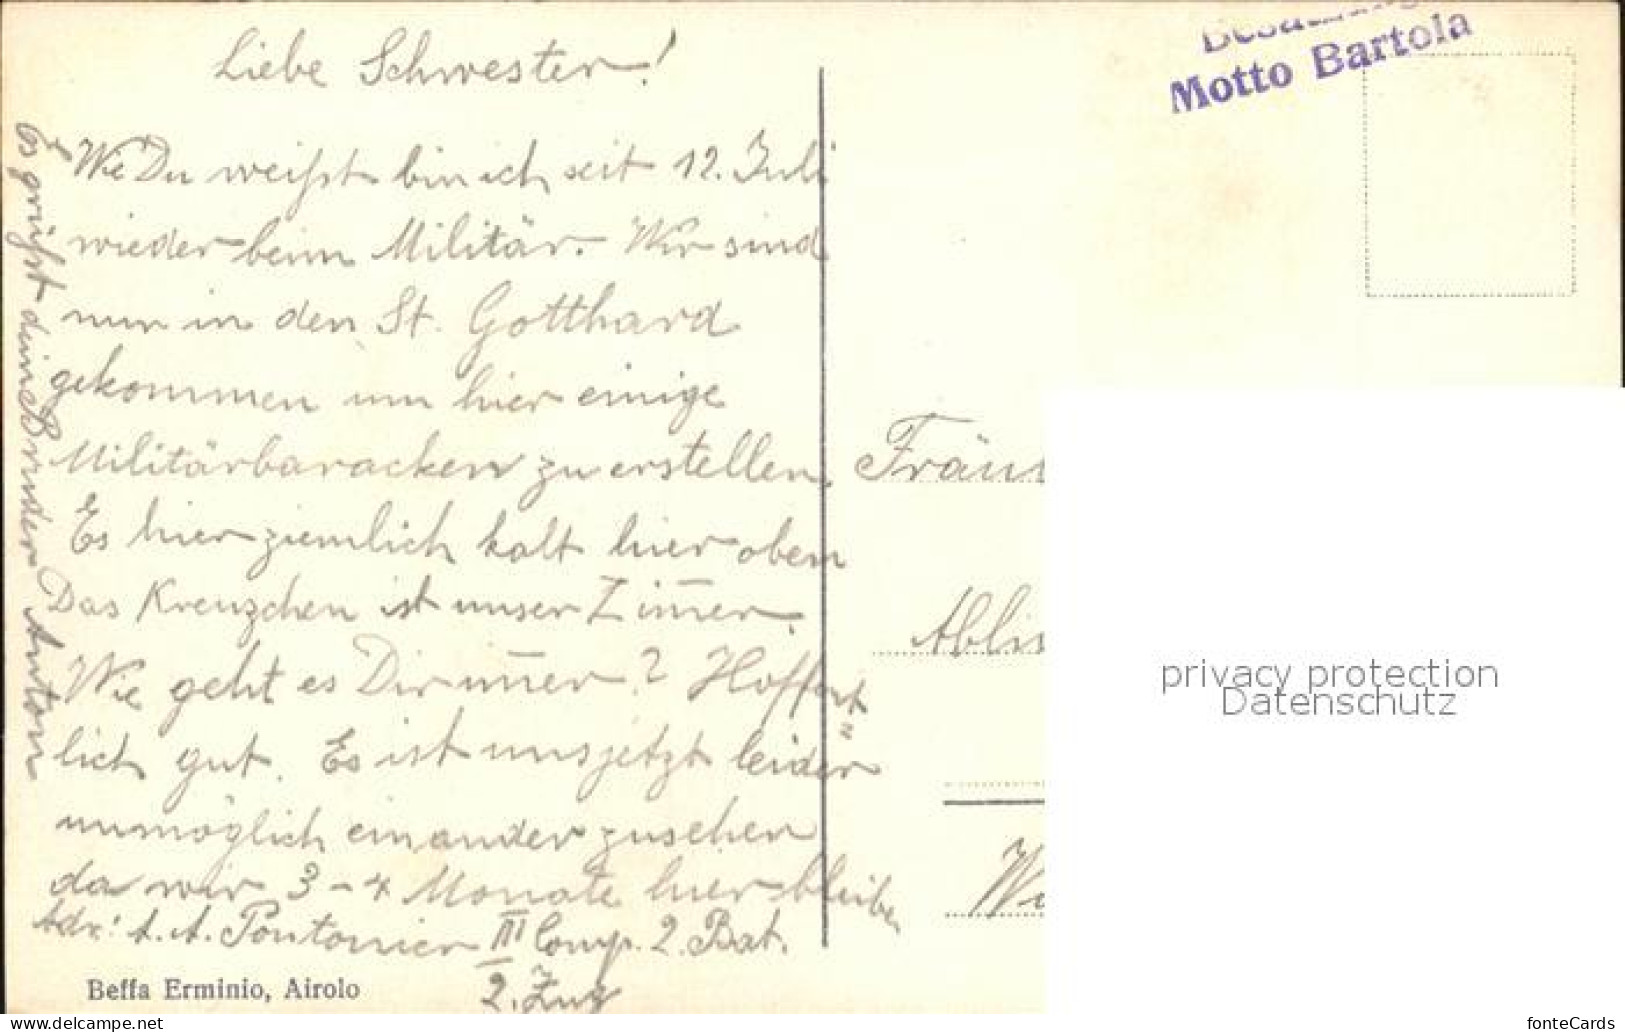 Liebe Schwester!
Wie Du weißt bin ich seit 12. Juli
wieder beim Militär. Wir sind
nun in den St. Gotthard
gekommen um hier einige
Militärbaracken zu erstellen.
Es hier ziemlich kalt hier oben
Das Kreuzchen ist unser Zim̅er.
Wie geht es Dir im̅er? Hoffent„
lich gut. Es ist uns jetzt leider
unmöglich einander zu sehen
da wir 3-4 Monate hier bleiben
Adr: A. A. Pontonier III Comp. 2. Bat.
2. Zug
Es grüßt deine Bruder Anton
Beffa Erminio, Airolo
Motto Bartola
Fräu
Abli
privacy protection
Datenschutz
W
fonteCards